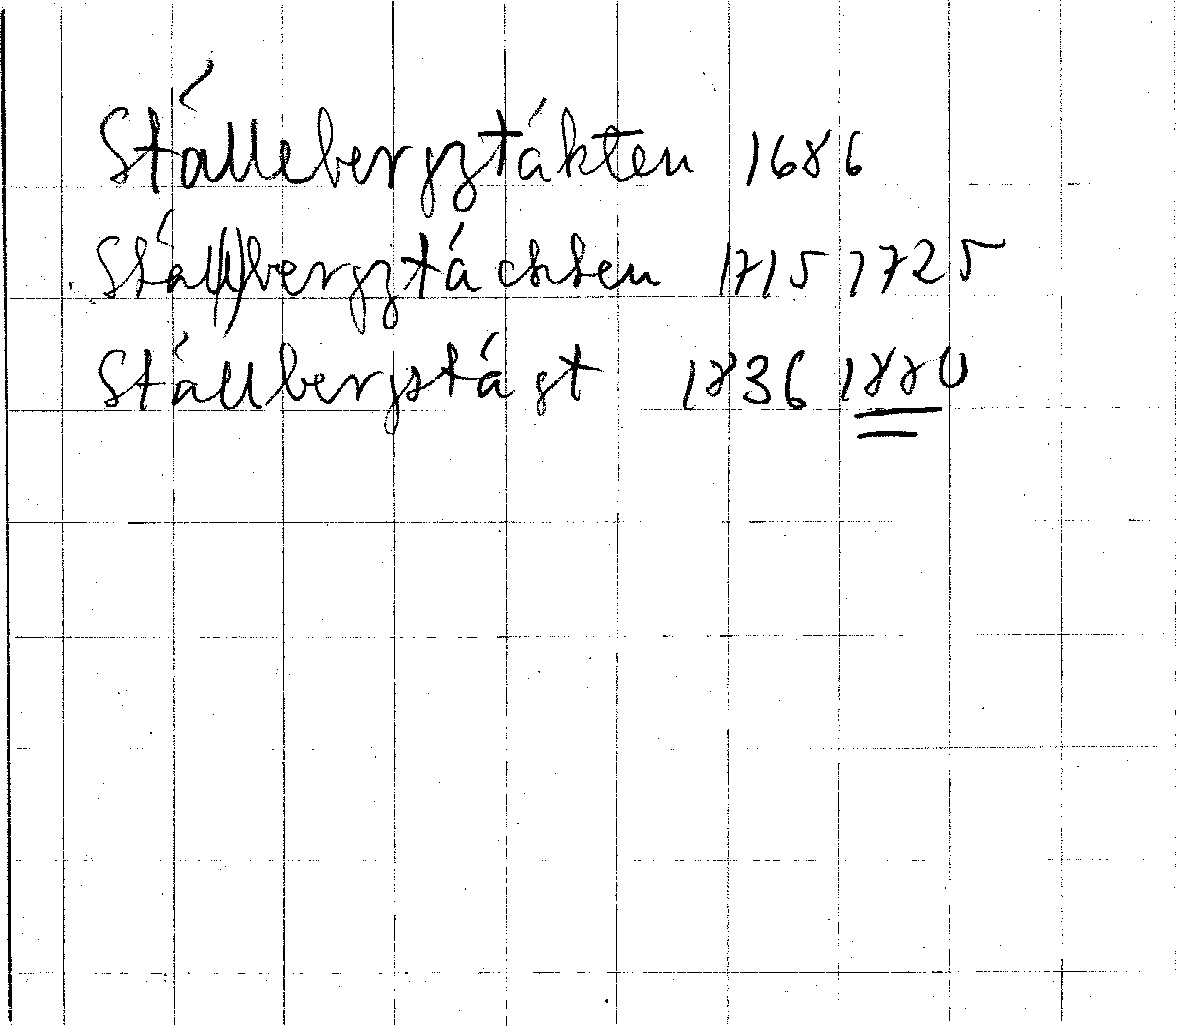 Stállebergztákten 1686
Stál(l)bergztáchten 1715 1725
Stállbergstágt 1836 1880